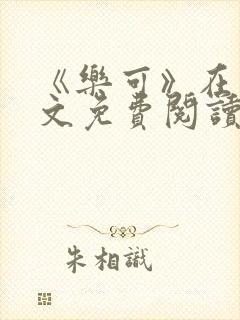 《樂可》在
文免費閱讀
朱相識